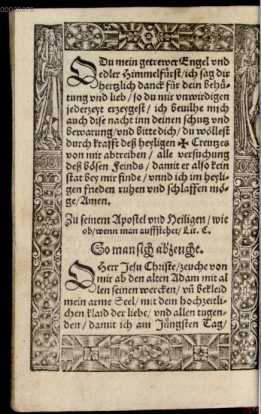 O Du mein getrewer Engel vnd
edler Himmelfürst/ ich sag dir
hertzlich danck für dein behü-
tung vnd lieb/ so du mir vnwirdigen
jederzeyt erzeygest/ ich beuilhe mich
auch dise nacht inn deinen schutz vnd
bewarung/ vnd bitte dich/ du wöllest
durch krafft deß heyligen ✠ Creutzes
von mir abtreiben/ alle versuchung
deß bösen Feinds/ damit er also kein
stat bey mir finde/ vnnd ich im heyli-
gen frieden ruhen vnd schlaffen mö-
ge/ Amen.
Zu seinem Apostel vnd Heiligen/ wie
ob/ wenn man auffstehet/ Lit. C.
So man sich abzeucht.
O Herr Jesu Christe/ zeuche von
mir ab den alten Adam mit al
len seinen wercken/ vñ bekleid
mein arme Seel/ mit dem hochzeitli-
chen klaid der liebe/ vnd allen tugen-
den/ damit ich am Jüngsten Tag/